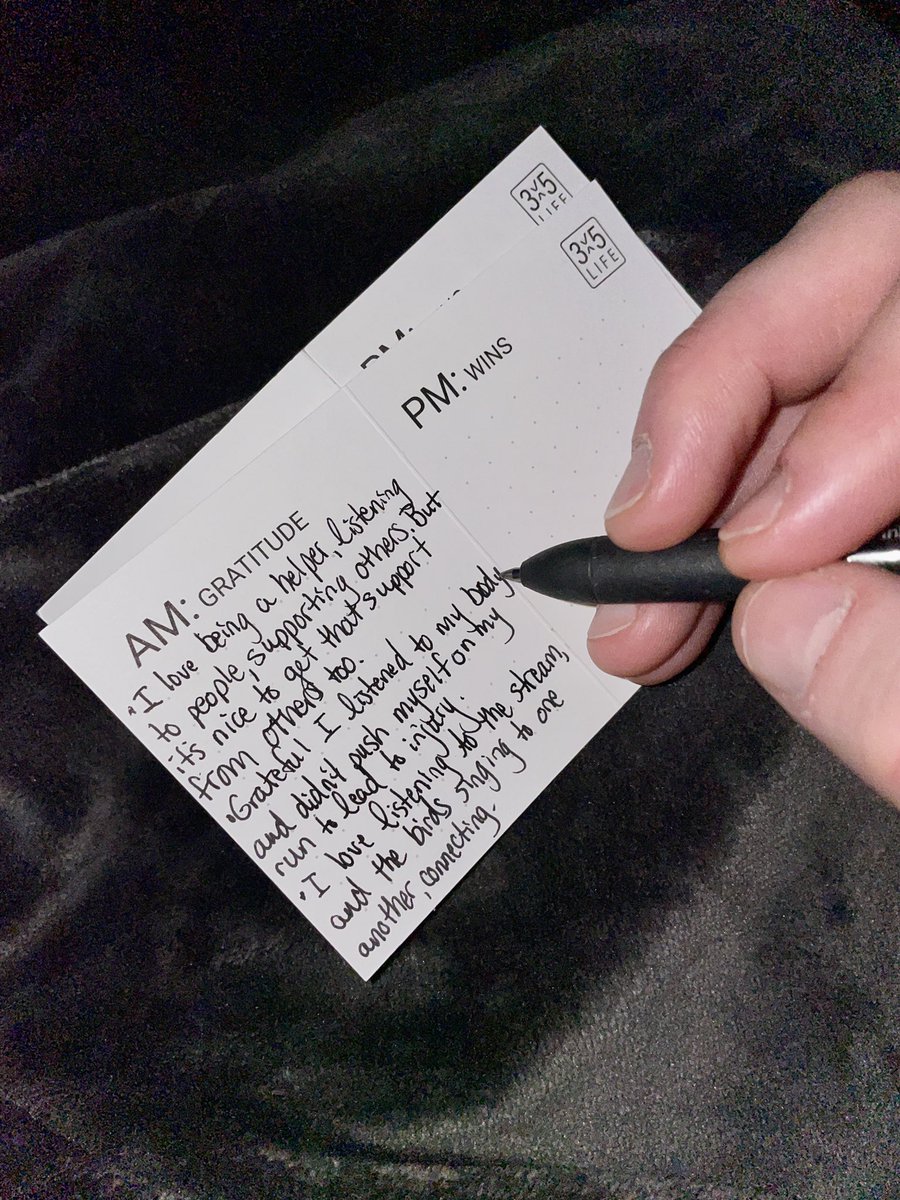 3x5
LIFE
3x5
LIFE
PM: WINS
AM: GRATITUDE
• I love being a helper, listening
to people, supporting others. But
it's nice to get that support
from others too.
• Grateful I listened to my body
and didn't push myself on my
run to lead to injury.
• I love listening to the stream,
and the birds singing to one
another, connecting.